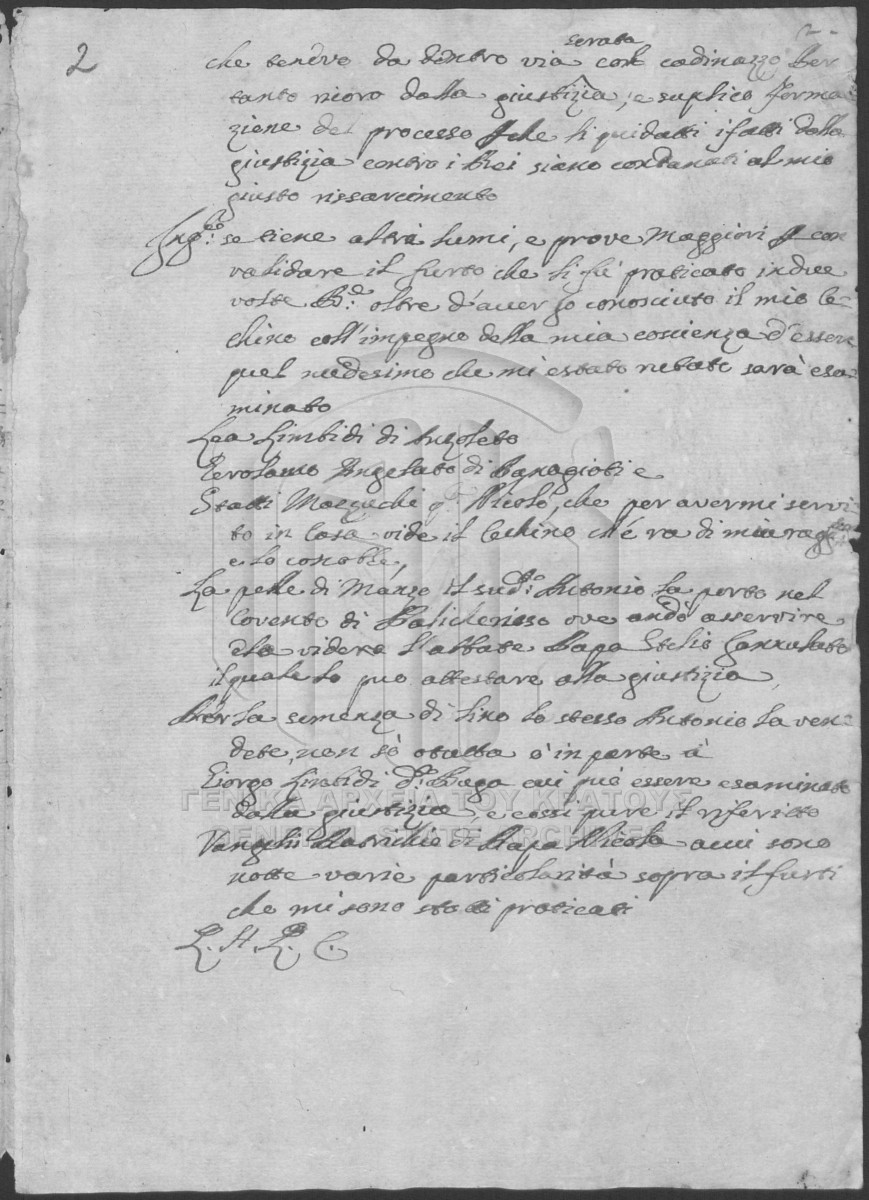 2
serata
che tenevo da dentro via con cadinazzo Per
tanto ricoro dalla giustizia, e suplico forma
zione del processo che liquidatti i fatti dalla
giustizia contro i Rei siano condanati al mio
giusto rissarcimento
Ingto: se tiene altri lumi, e prove Maggiori p con
validare il furto che li fù praticato in due
volte Rd: oltre d'aver Io conosciuto il mio le-
chino coll'impegno della mia coscienza d'essere
quel medesimo che mi è stato rubato sarà esa-
minato
Lea Limbidi di Anzoleto
Gerolamo Anzolato di Panagioti e
Statti qm Nicolò, che per avermi servi
to in Casa vide il lechino ch'era di mia rag
e lo conobbe,
La pelle di Manzo il sudo: Antonio la portò nel
Covento di ove andò asservire
e la videre l'abbate Papa Stelio
il quale lo può attestare alla giustizia,
Per la semenza di lino lo stesso Antonio la ven-
dete, non sò ò tutta ò in parte à
Giorgo Limbidi di Baga cui può essere esaminato
dalla giustizia, e cossì pure il riferitto
Vangeli di Papa Nicola a cui sono
notte varie particolarità sopra il furti
che mi sono statti praticati
L. H. L. C.
ΓΕΝΙΚΑ ΑΡΧΕΙΑ ΤΟΥ ΚΡΑΤΟΥΣ
GENERAL STATE ARCHIVES